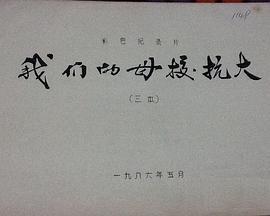 1148
彩色纪录片
我们的母校·抗大
(三本)
一九八六年五月